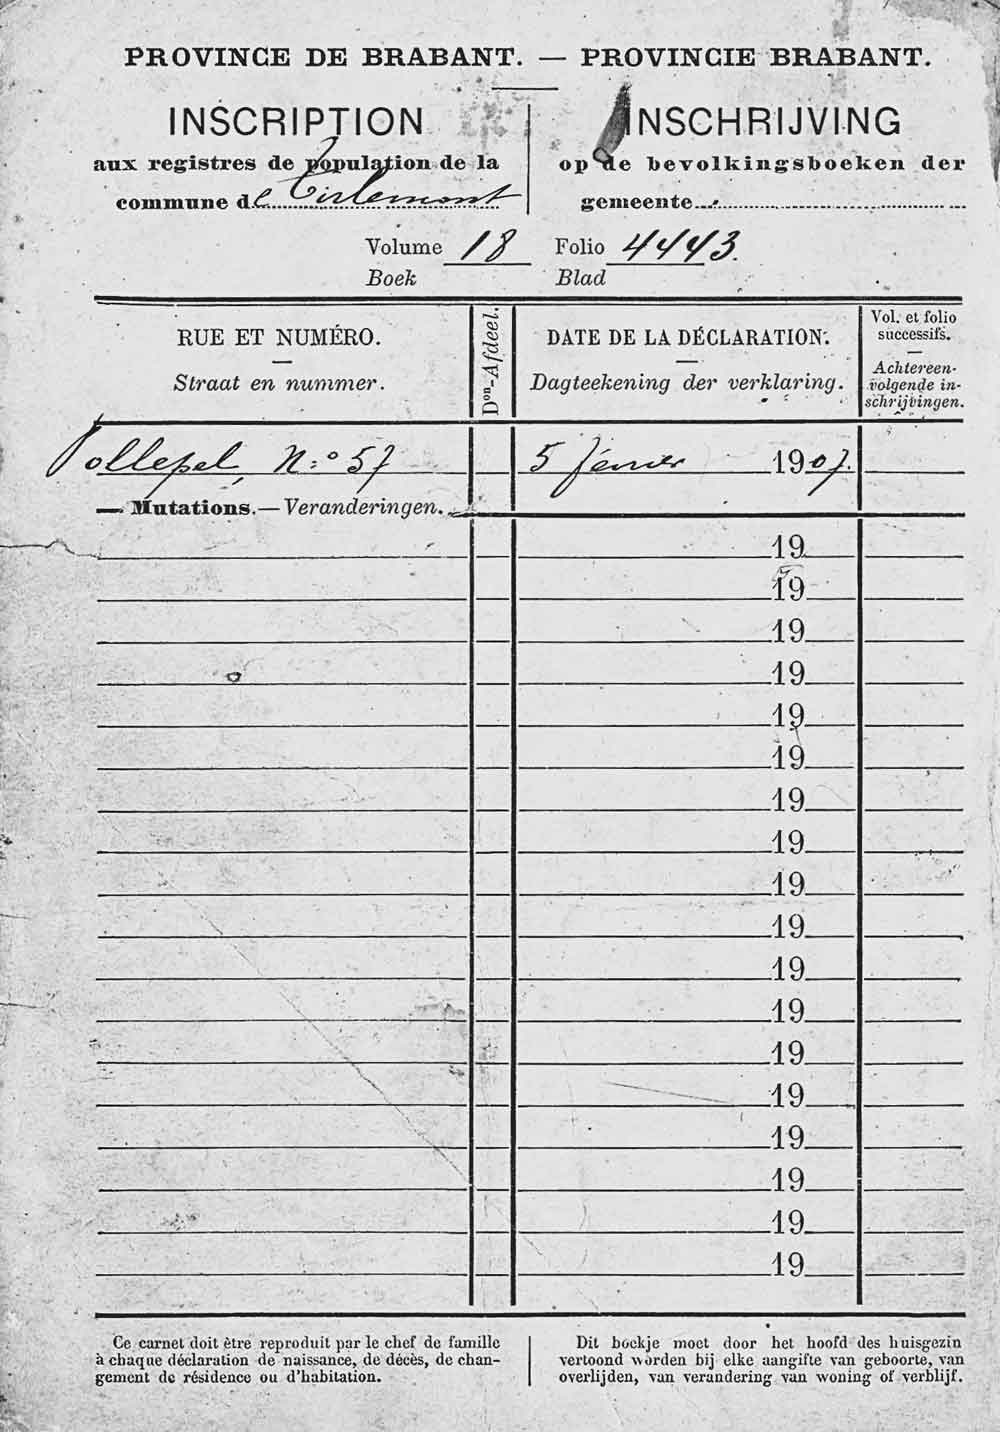 PROVINCE DE BRABANT. — PROVINCIE BRABANT.
INSCRIPTION
aux registres de population de la
commune de Tirlemont
INSCHRIJVING
op de bevolkingsboeken der
gemeente
Volume 18 Folio 4443.
Boek Blad
RUE ET NUMÉRO.
Straat en nummer.
Don-Afdeel.
DATE DE LA DÉCLARATION.
Dagteekening der verklaring.
Vol. et folio
successifs.
Achtereen-
volgende in-
schrijvingen.
Pollepel, N:o 57 5 février 1907.
— Mutations. — Veranderingen.
19
19
19
19
19
19
19
19
19
19
19
19
19
19
19
19
19
19
Ce carnet doit être reproduit par le chef de famille
à chaque déclaration de naissance, de décès, de chan-
gement de résidence ou d'habitation.
Dit boekje moet door het hoofd des huisgezin
vertoond worden bij elke aangifte van geboorte, van
overlijden, van verandering van woning of verblijf.